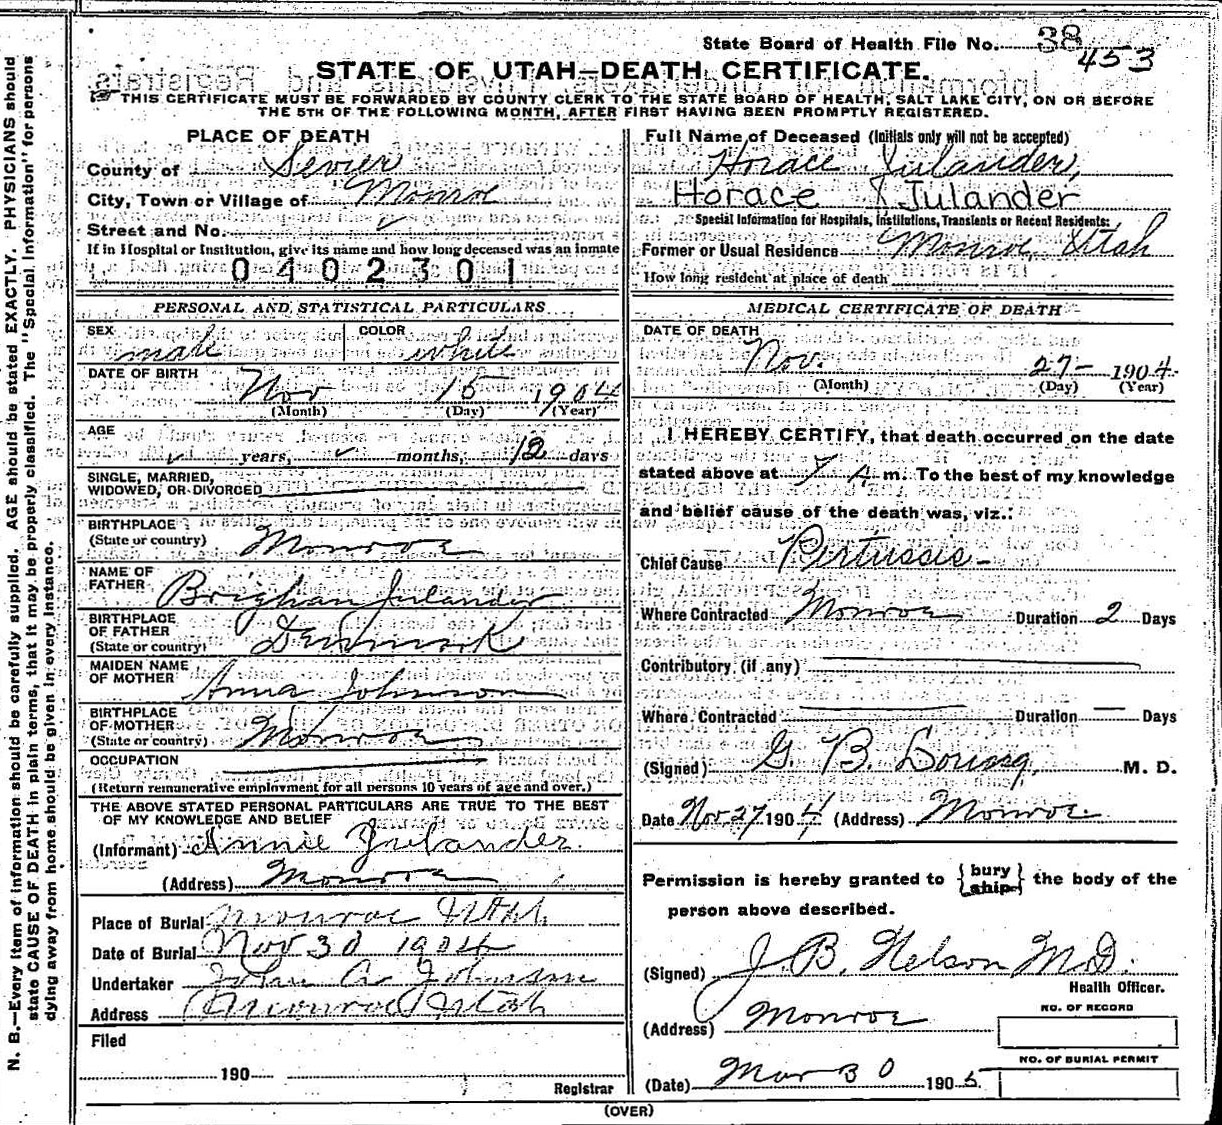 N. B.—Every item of information should be carefully supplied. AGE should be stated EXACTLY. PHYSICIANS should
state CAUSE OF DEATH in plain terms, that it may be properly classified. The "Special Information" for persons
dying away from home should be given in every instance.
State Board of Health File No. 38
453
STATE OF UTAH—DEATH CERTIFICATE.
THIS CERTIFICATE MUST BE FORWARDED BY COUNTY CLERK TO THE STATE BOARD OF HEALTH, SALT LAKE CITY, ON OR BEFORE
THE 5TH OF THE FOLLOWING MONTH, AFTER FIRST HAVING BEEN PROMPTLY REGISTERED.
PLACE OF DEATH
County of Sevier
City, Town or Village of Monroe
Street and No.
If in Hospital or Institution, give its name and how long deceased was an inmate
0402301
PERSONAL AND STATISTICAL PARTICULARS
SEX male COLOR white
DATE OF BIRTH Nov 15 1904
(Month) (Day) (Year)
AGE
years, months, 12 days
SINGLE, MARRIED,
WIDOWED, OR DIVORCED
BIRTHPLACE
(State or country) Monroe
NAME OF
FATHER Brighan Julander
BIRTHPLACE
OF FATHER
(State or country) Denmark
MAIDEN NAME
OF MOTHER Anna Johnson
BIRTHPLACE
OF MOTHER
(State or country) Monroe
OCCUPATION
(Return remunerative employment for all persons 10 years of age and over.)
THE ABOVE STATED PERSONAL PARTICULARS ARE TRUE TO THE BEST
OF MY KNOWLEDGE AND BELIEF
(Informant) Annie Julander
(Address) Monroe
Place of Burial Monroe Utah
Date of Burial Nov 30 1904
Undertaker John A Johnson
Address Monroe Utah
Filed
190
Registrar
Full Name of Deceased (Initials only will not be accepted)
Horace Julander,
Horace J Julander
Special Information for Hospitals, Institutions, Transients or Recent Residents:
Former or Usual Residence Monroe, Utah
How long resident at place of death
MEDICAL CERTIFICATE OF DEATH
DATE OF DEATH
Nov. 27- 1904.
(Month) (Day) (Year)
I HEREBY CERTIFY, that death occurred on the date
stated above at 7 A. m. To the best of my knowledge
and belief cause of the death was, viz.:
Chief Cause Pertussis-
Where Contracted Monroe Duration 2 Days
Contributory (if any)
Where Contracted Duration — Days
(Signed) G. B. M. D.
Date Nov. 27 1904 (Address) Monroe
Permission is hereby granted to {bury ship} the body of the
person above described.
(Signed) J. B. Nelson M.D.
Health Officer.
(Address) Monroe
NO. OF RECORD
NO. OF BURIAL PERMIT
(Date) Mar 30 1905
(OVER)